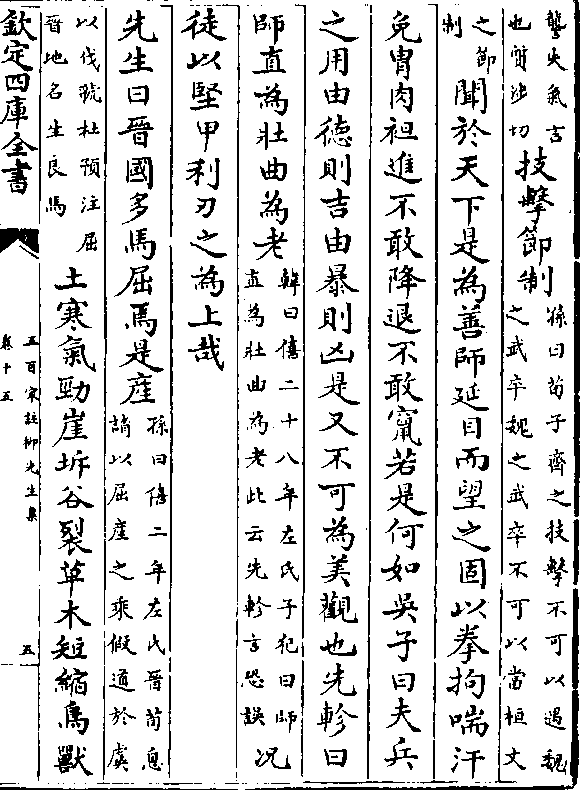 讋失氣言
也質涉切
技擊節制
孫曰荀子齊之技擊不可以遇魏
之武卒魏之武卒不可以當桓文
之節
制
聞於天下是為善師延目而望之固以拳拘喘汗
免冑肉袒進不敢降退不敢竄若是何如吳子曰夫兵
之用由德則吉由暴則凶是又不可為美觀也先軫曰
師直為壯曲為老
韓曰僖二十八年左氏子犯曰師
直為壯曲為老此云先軫言恐誤
况
徒以堅甲利刃之為上哉
先生曰晉國多馬屈焉是產
孫曰僖二年左氏晉荀息
請以屈產之乘假道於虞
以伐虢杜預注屈
晉地名生良馬
土寒氣勁崖坼谷裂草木短縮鳥獸
欽定四庫全書
五百家註柳先生集
卷十五
五